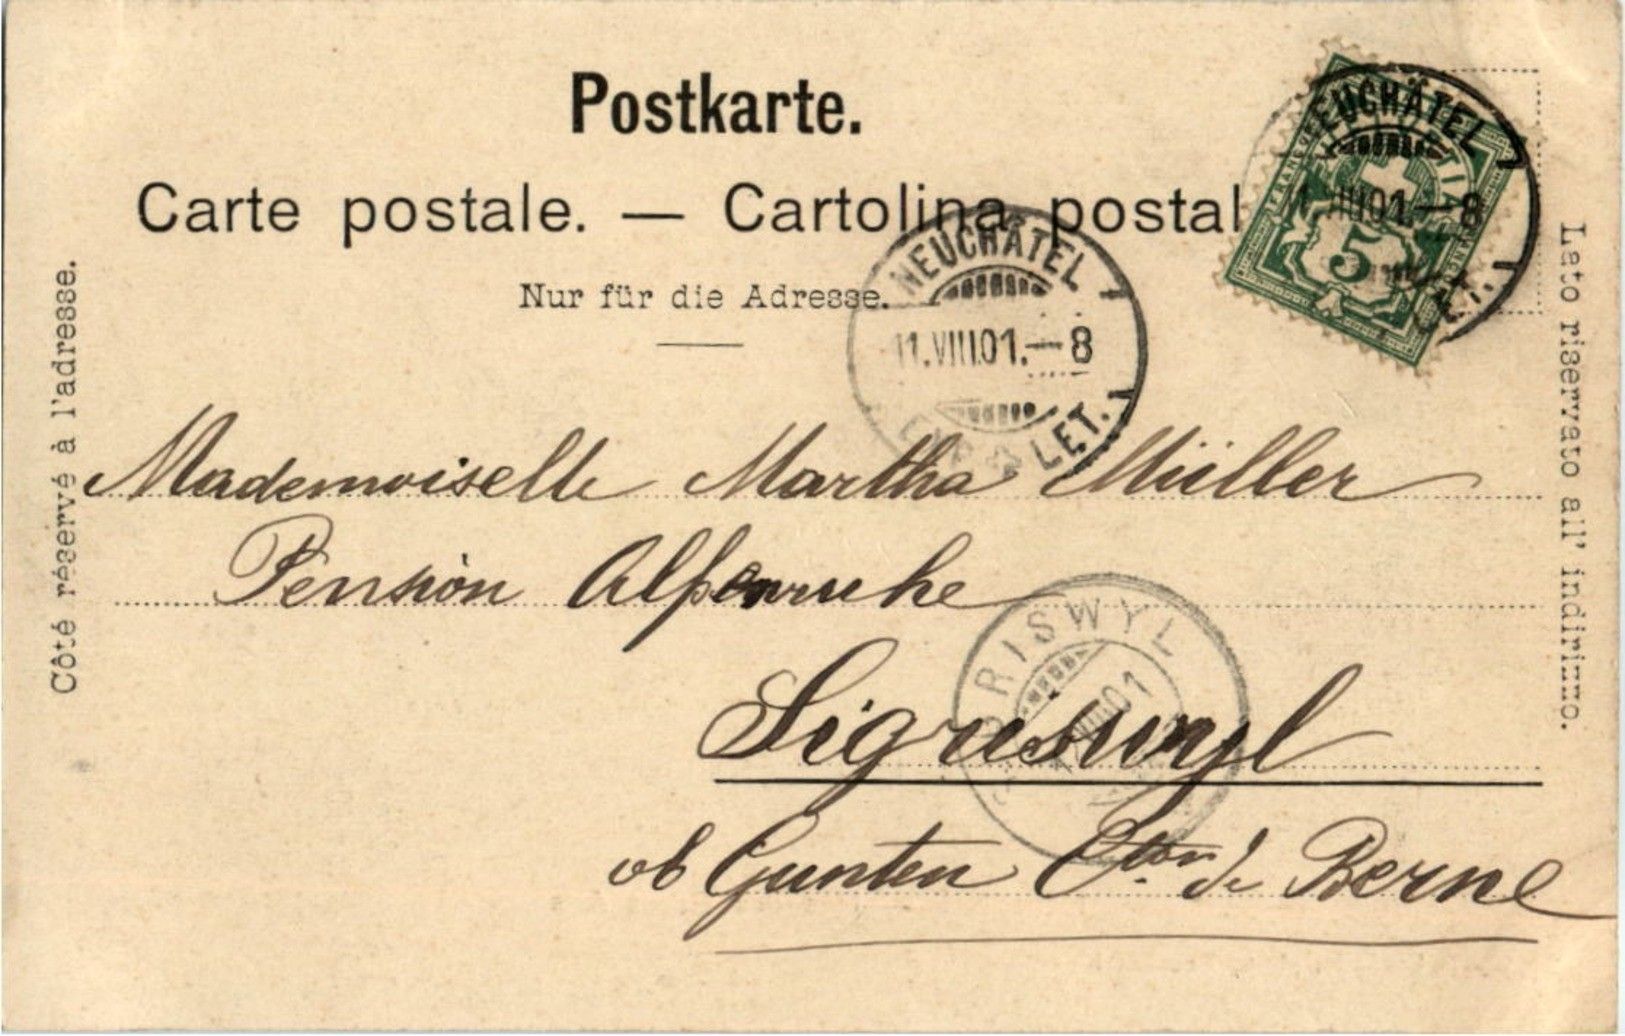 Postkarte.
Carte postale. — Cartolina postal
Nur für die Adresse.
Côté réservé à l'adresse.
Lato riservato all' indirizzo.
NEUCHÂTEL
VIII 01.-8
LET.
5
NEUCHÂTEL
11.VIII.01.-8
LET.
Mademoiselle Martha Müller
Pension Alpenruhe
RISWYL
VIII 01
Sigriswyl
ob Gunten Cton de Berne